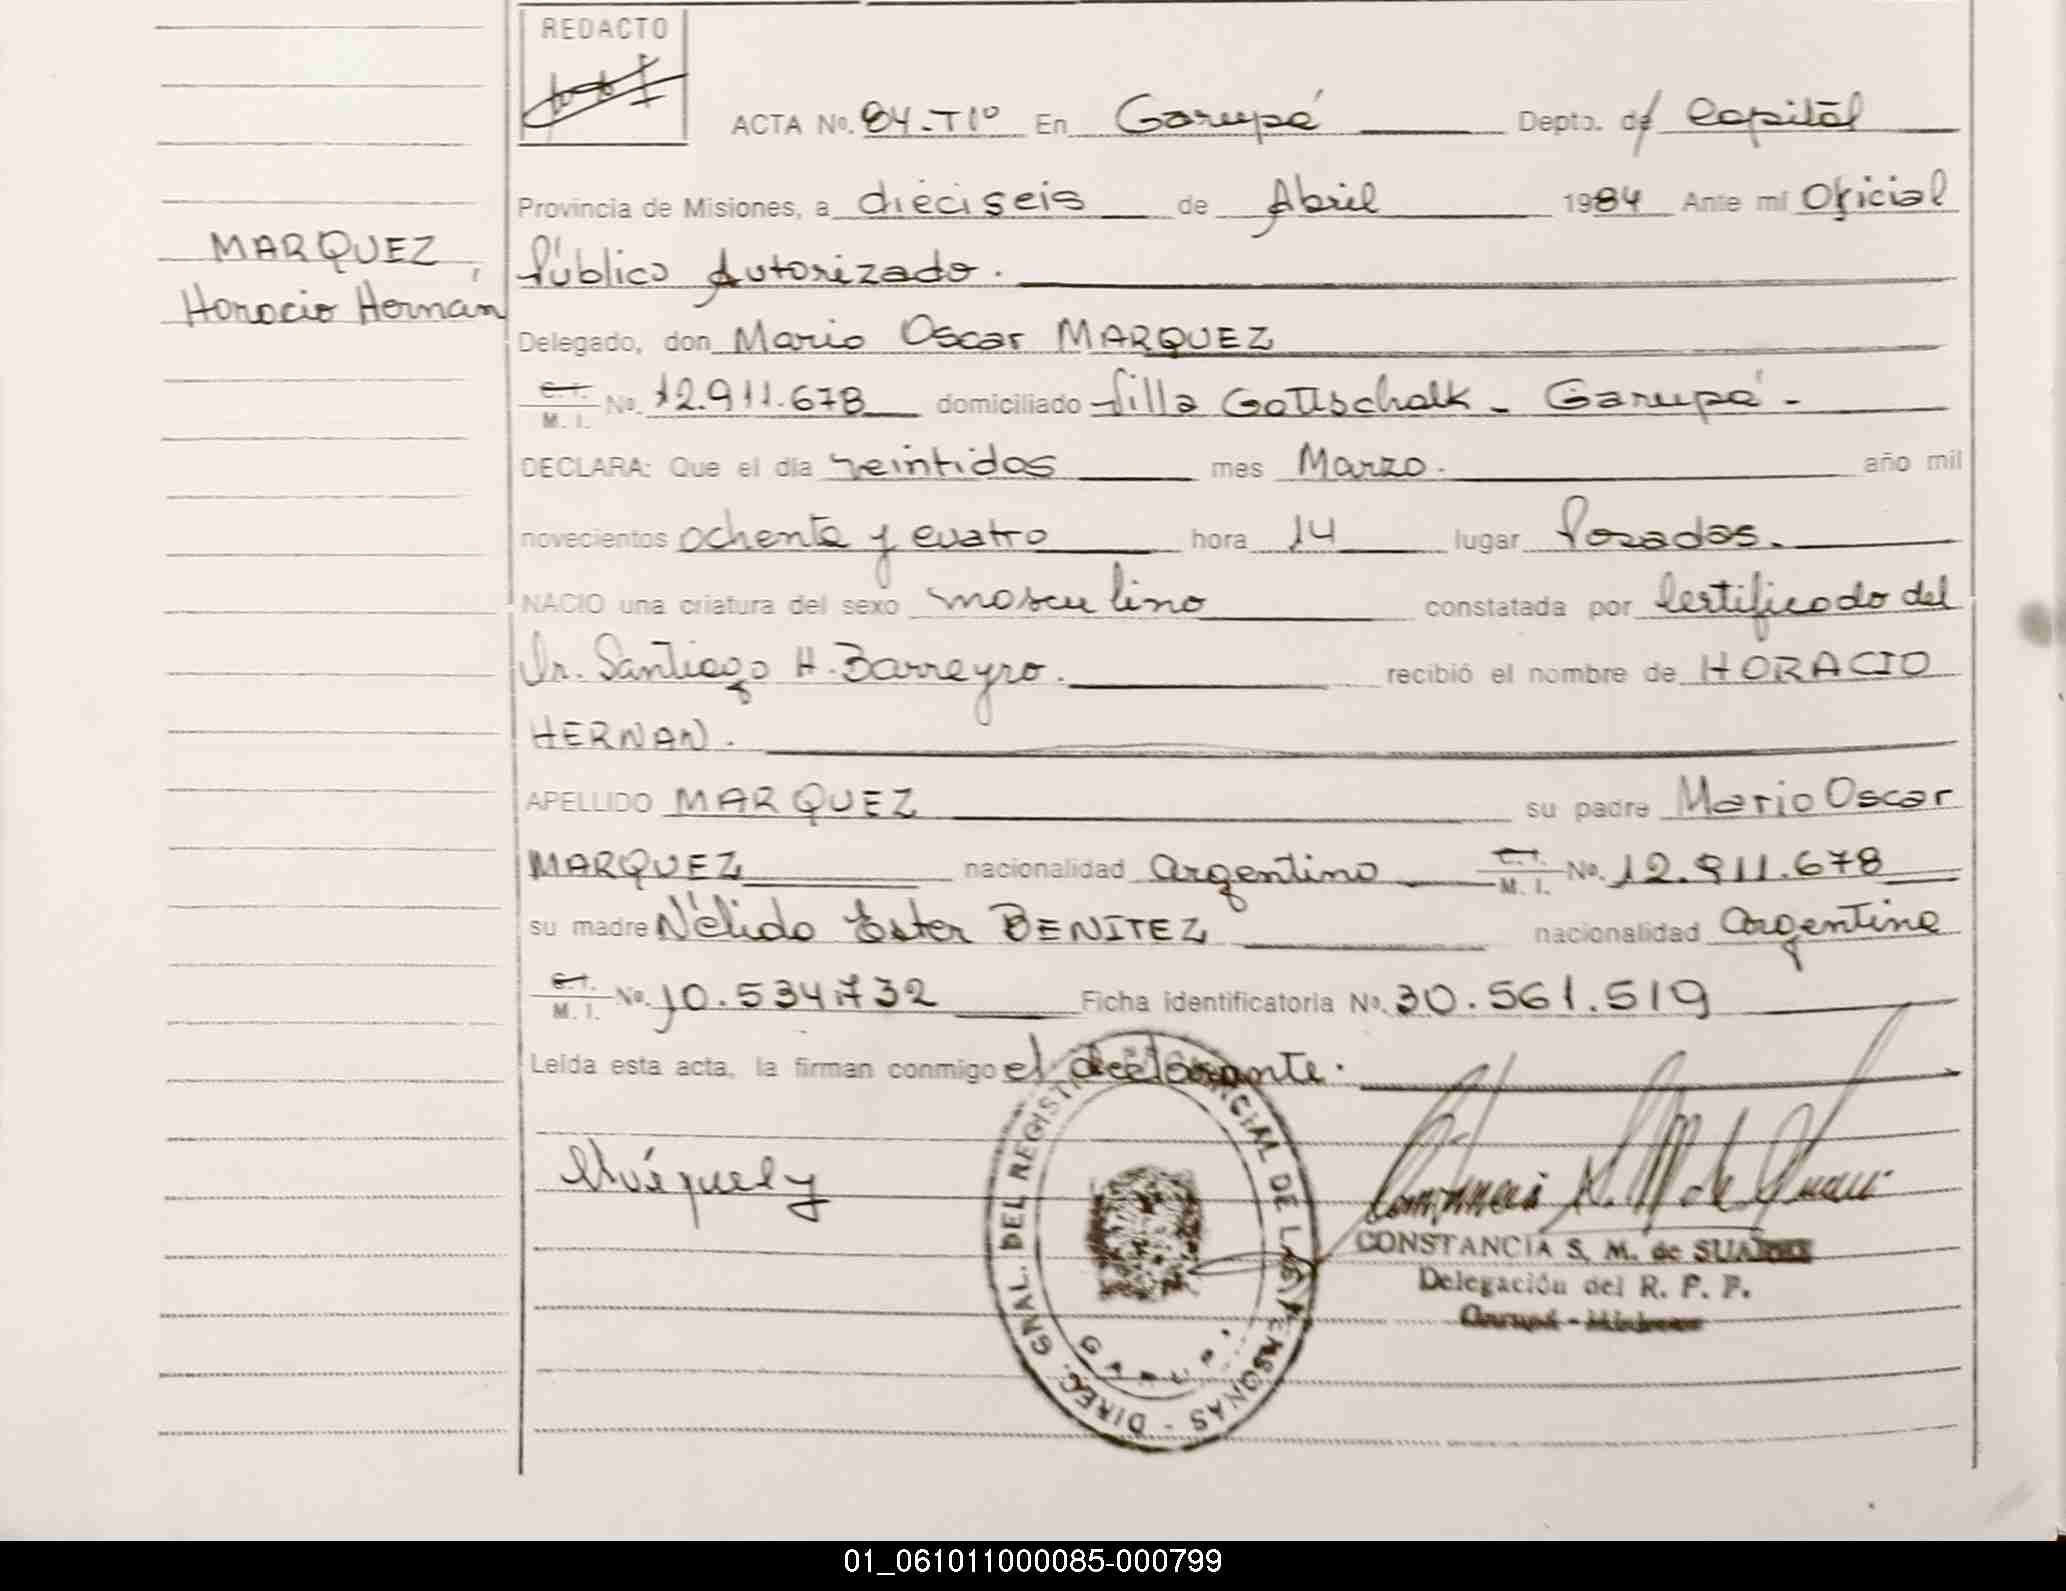 REDACTO
ACTA No. 84-Tº1º En Garupá Depto. de Capital
Provincia de Misiones, a dieciseis de Abril 1984 Ante mí Oficial
MARQUEZ,
Público Autorizado.
Horacio Hernán
Delegado, don Mario Oscar MARQUEZ
C.I. M.I. No. 12.911.678 domiciliado Villa Gottschalk - Garupá -
DECLARA: Que el día veintidos mes Marzo. año mil
novecientos ochenta y cuatro hora 14 lugar Posadas.
NACIO una criatura del sexo masculino constatada por Certificado del
Dr. Santiago H. Barreyro. recibió el nombre de HORACIO
HERNAN.
APELLIDO MARQUEZ su padre Mario Oscar
MARQUEZ nacionalidad Argentino C.I. M.I. No. 12.911.678
su madre Nélida Ester BENITEZ nacionalidad Argentina
C.I. M.I. No. 10.534.732 Ficha identificatoria No. 30.561.519
Leída esta acta, la firman conmigo el declarante.
CONSTANCIA S. M. de SUAREZ
Delegación del R. P. P.
Garupá - Misiones
DIREC. GNAL. DEL REGISTRO PROVINCIAL DE LAS PERSONAS -
GARUPA
01_061011000085-000799